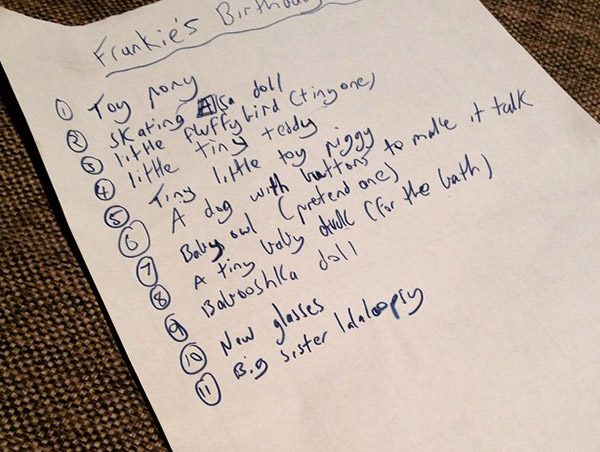 Frankie's Birthday
① Toy pony
② Skating Elsa doll
③ little fluffy bird (tiny one)
④ little tiny teddy
⑤ Tiny little toy piggy
⑥ A dog with buttons to make it talk
⑦ Baby owl (pretend one)
⑧ A tiny baby duck (for the bath)
⑨ Babooshka doll
⑩ New glasses
⑪ Big sister lalaloopsy